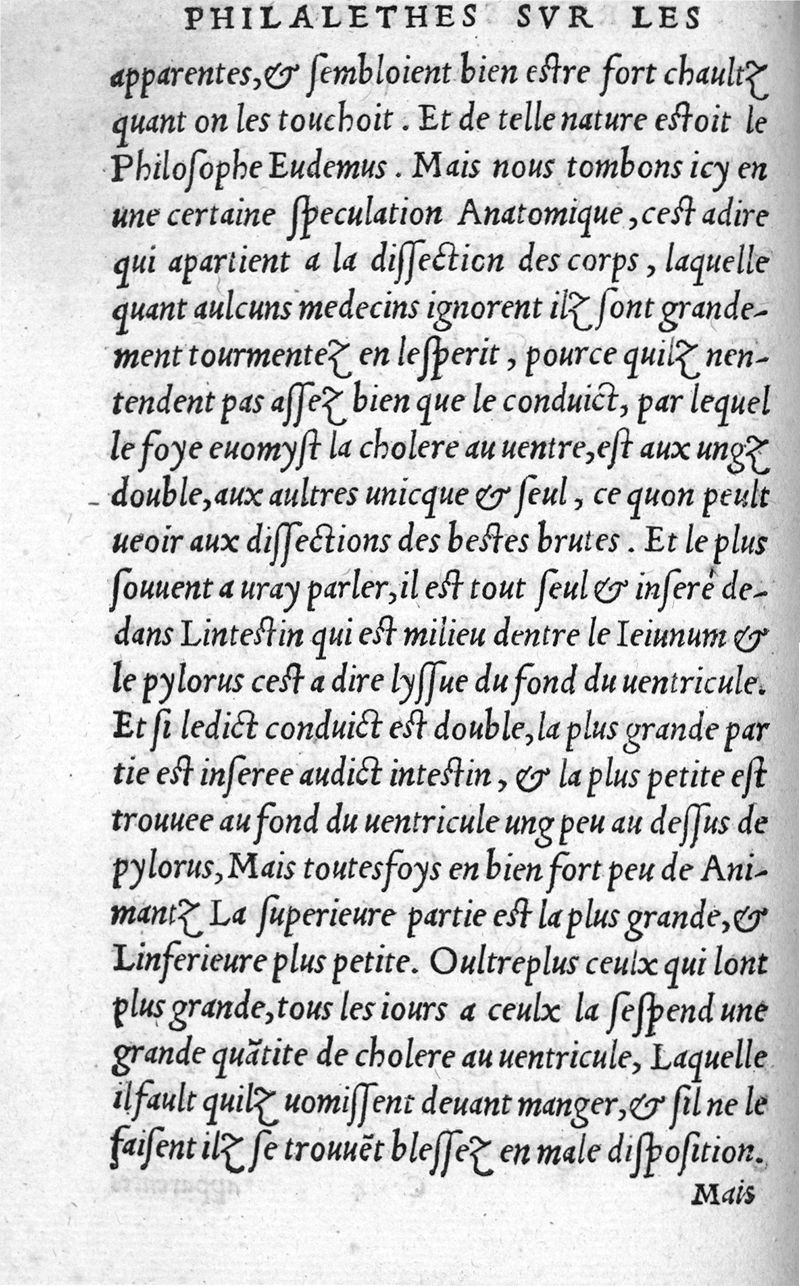 PHILALETHES SVR LES
apparentes,& ſembloient bien eſtre fort chaultz
quant on les touchoit . Et de telle nature eſtoit le
Philoſophe Eudemus . Mais nous tombons icy en
une certaine ſpeculation Anatomique ,ceſt adire
qui apartient a la diſſection des corps , laquelle
quant aulcuns medecins ignorent ilz ſont grande-
ment tourmentez en leſperit , pource quilz nen-
tendent pas aſſez bien que le conduict, par lequel
le foye euomyſt la cholere au uentre,eſt aux ungz
double,aux aultres unicque & ſeul , ce quon peult
ueoir aux diſſections des beſtes brutes . Et le plus
ſouuent a uray parler,il eſt tout ſeul & inſeré de-
dans Linteſtin qui eſt milieu dentre le Ieiunum &
le pylorus ceſt a dire lyſſue du fond du uentricule.
Et ſi ledict conduict eſt double,la plus grande par
tie eſt inſeree audict inteſtin , & la plus petite eſt
trouuee au fond du uentricule ung peu au deſſus de
pylorus, Mais toutesfoys en bien fort peu de Ani-
mantz La ſuperieure partie eſt la plus grande,&
Linferieure plus petite. Oultreplus ceulx qui lont
plus grande,tous les iours a ceulx la ſeſpend une
grande quãtite de cholere au uentricule, Laquelle
ilfault quilz uomiſſent deuant manger,& ſil ne le
faiſent ilz ſe trouuẽt bleſſez en male diſpoſition.
Mais